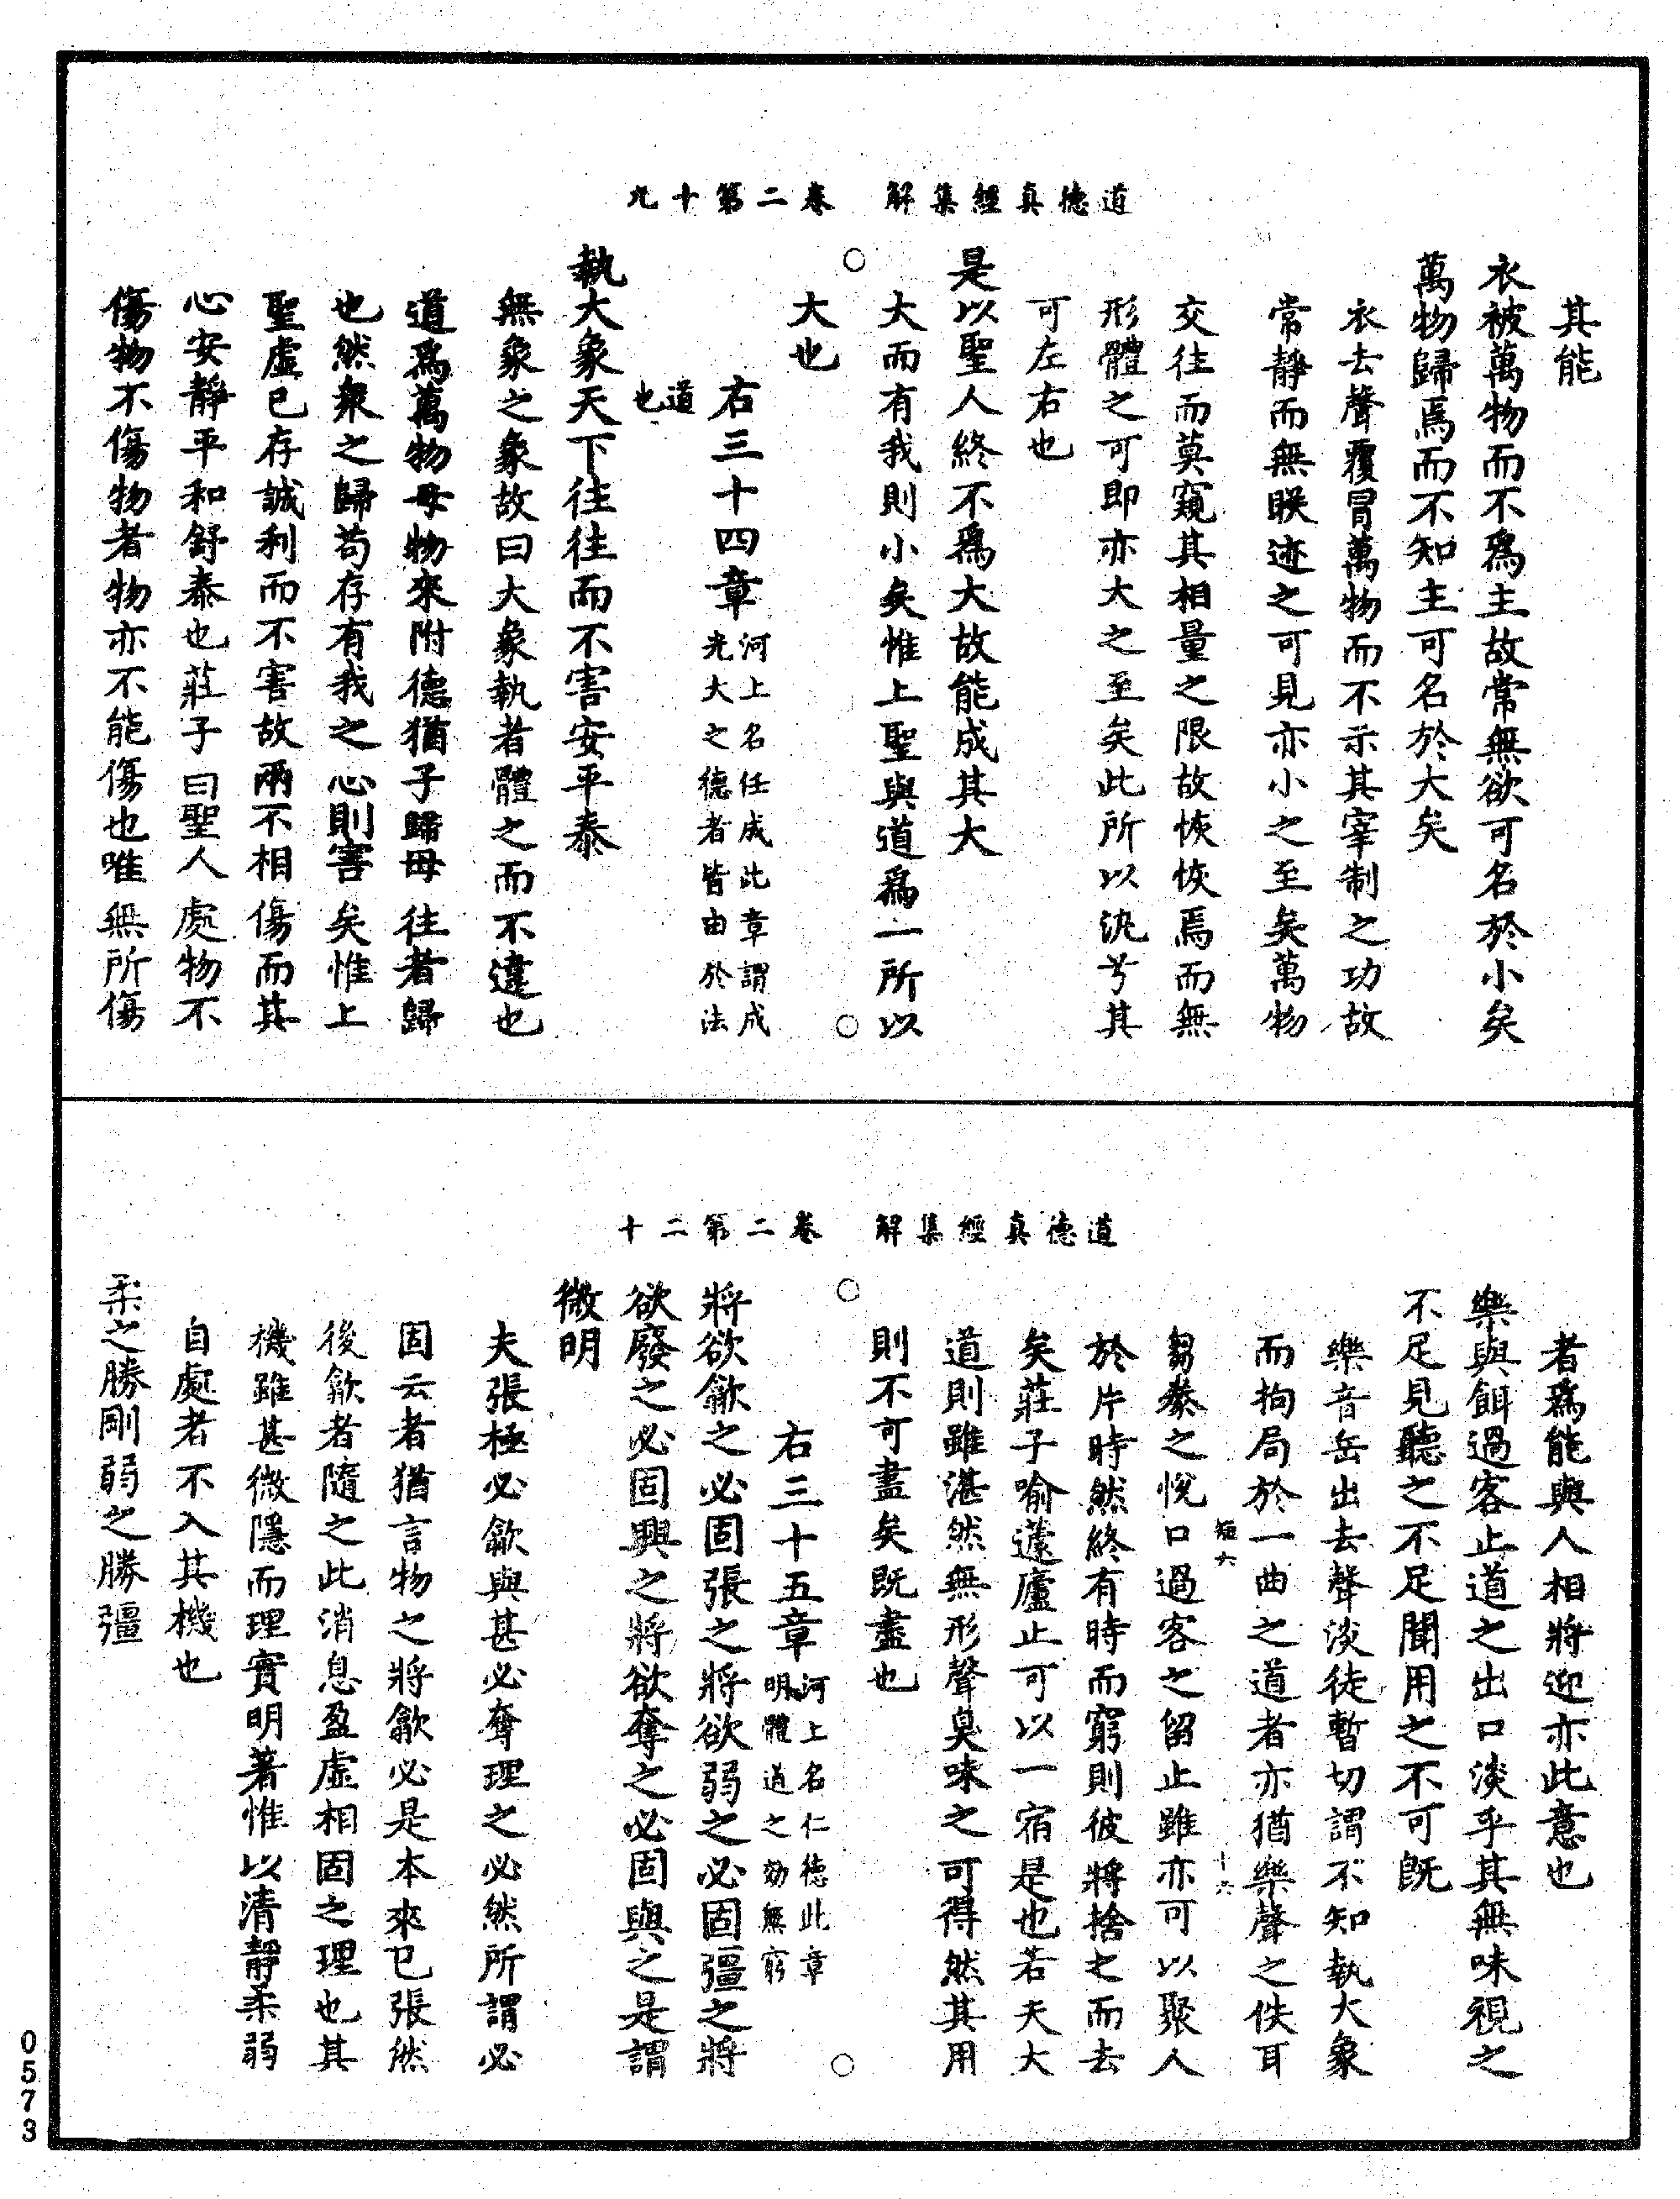 道德真經集解　卷二第十九
其能
衣被萬物而不爲主故常無欲可名於小矣
萬物歸焉而不知主可名於大矣
衣去聲覆冒萬物而不示其宰制之功故
常靜而無眹迹之可見亦小之至矣萬物
交往而莫窺其相量之限故恢恢焉而無
形體之可即亦大之至矣此所以汎兮其
可左右也
是以聖人終不爲大故能成其大
大而有我則小矣惟上聖與道爲一所以
○大也○
右三十四章河上名任成此章謂成
光大之德者皆由於法
道
也
執大象天下往往而不害安平泰
無象之象故曰大象執者體之而不違也
道爲萬物母物來附德猶子歸母往者歸
也然衆之歸苟存有我之心則害矣惟上
聖虛已存誠利而不害故兩不相傷而其
心安靜平和舒泰也莊子曰聖人處物不
傷物不傷物者物亦不能傷也唯無所傷
道德真經集解　卷二第二十
者爲能與人相將迎亦此意也
樂與餌過客止道之出口淡乎其無味視之
不足見聽之不足聞用之不可旣
樂音岳出去聲淡徒暫切謂不知執大象
而拘局於一曲之道者亦猶樂聲之佚耳
短六
十六
芻豢之悅口過客之留止雖亦可以聚人
於片時然終有時而窮則彼將捨之而去
矣莊子喻蘧廬止可以一宿是也若夫大
道則雖湛然無形聲臭味之可得然其用
則不可盡矣既盡也
○○
右三十五章河上名仁德此章
明體道之効無窮
將欲歙之必固張之將欲弱之必固彊之將
欲廢之必固興之將欲奪之必固與之是謂
微明
夫張極必歙與甚必奪理之必然所謂必
固云者猶言物之將歙必是本來已張然
後歙者隨之此消息盈虛相固之理也其
機雖甚微隱而理實明著惟以清靜柔弱
自處者不入其機也
柔之勝剛弱之勝彊
0573